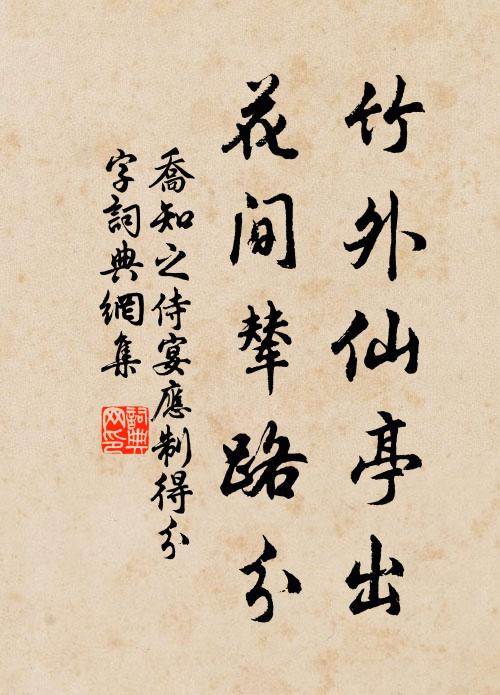 竹外仙亭出
花間輦路分
喬知之侍宴應制得分
字詞典網集
詞典
网印